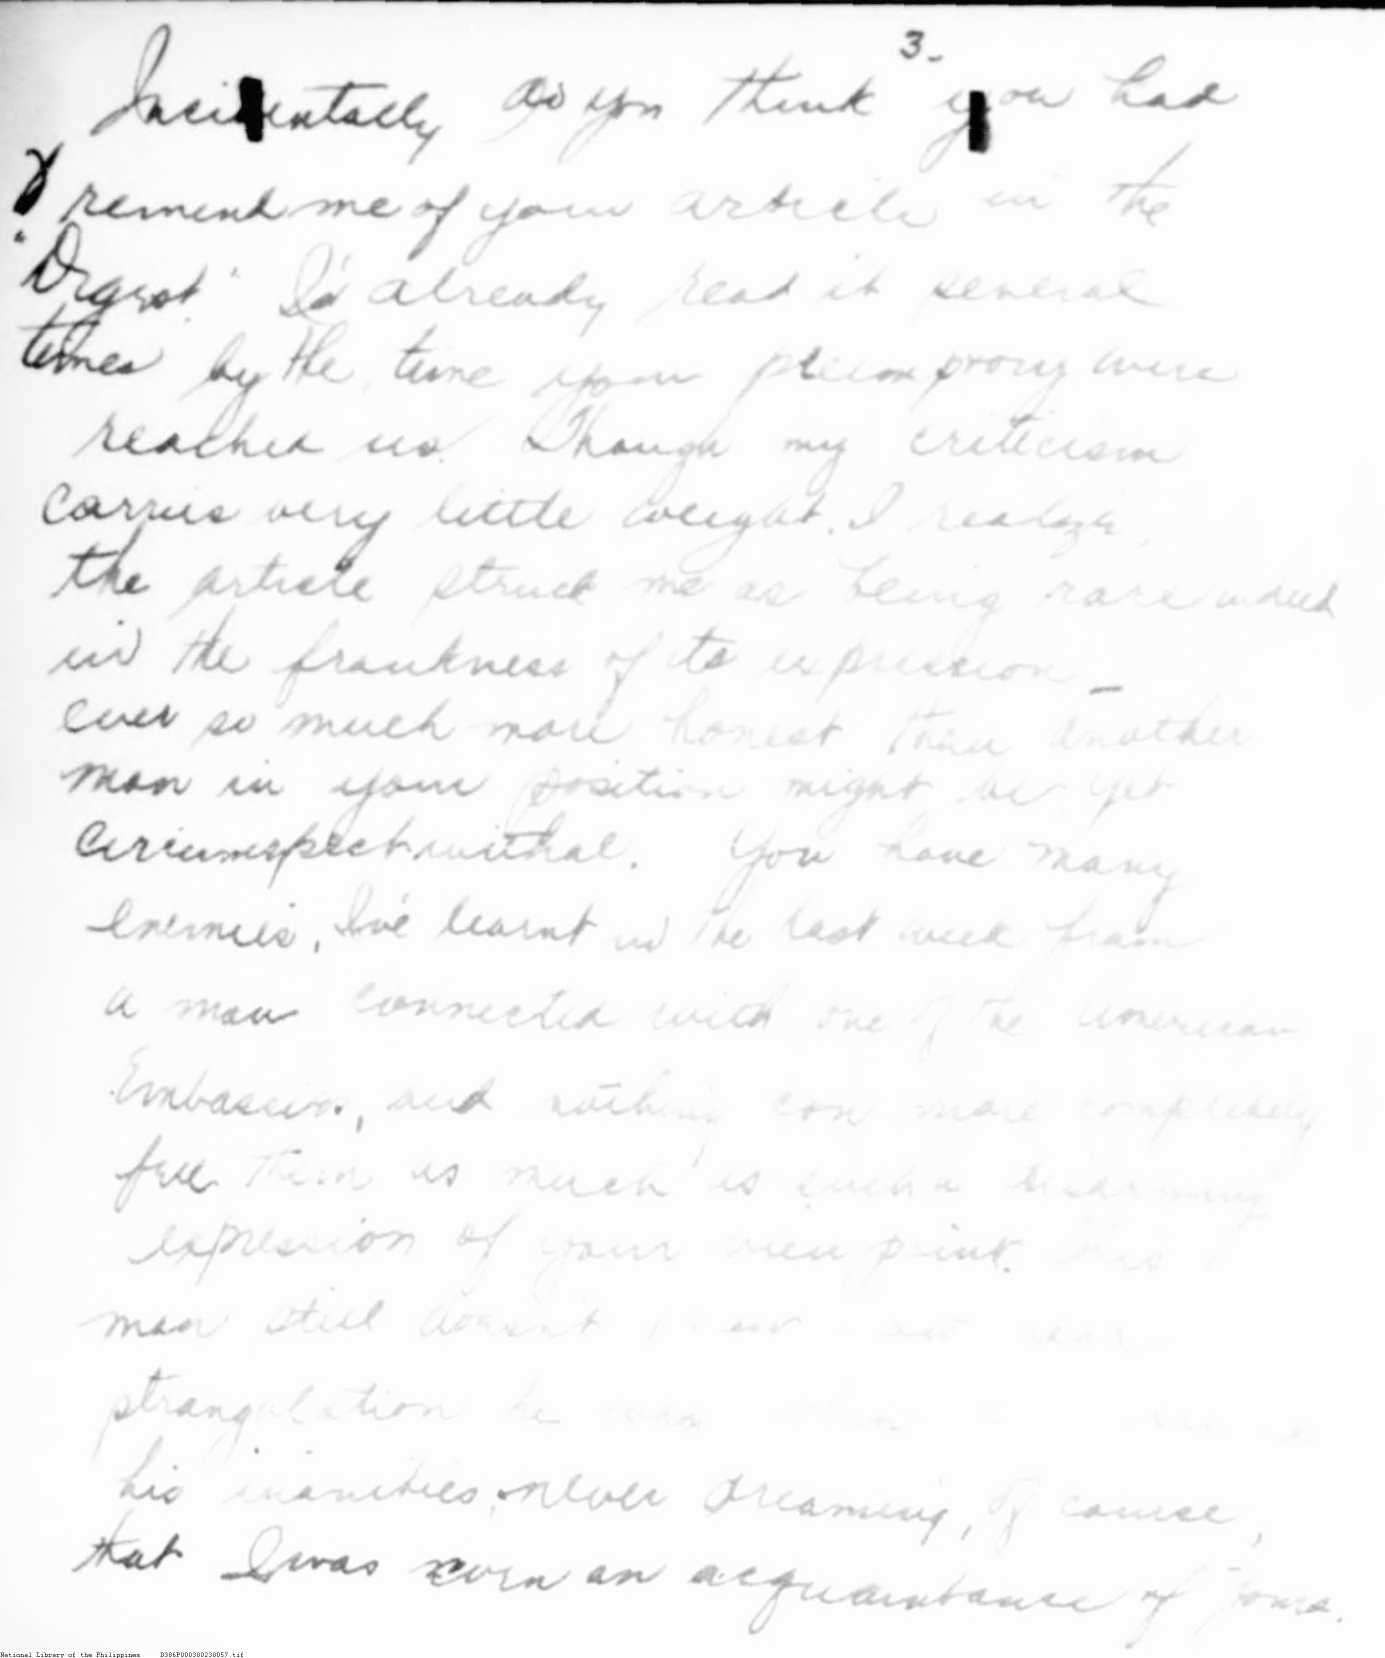 3-
Incidentally do you think you had
remind me of your article in the
"Digest." I'd already read it several
times by the time your were
reached us. Though my criticism
carries very little weight. I realize,
the article struck me as being rare indeed
in the frankness of its expression —
ever so much more honest than another
man in your position might be yet
circumspect withal. You have many
enemies, I've learnt in the last week from
a man connected with one of the American
Embassies, and nothing can more completely
them as much as such a disarming
expression of your view point. This
man still doesn't know
strangulation he was
his inanities, never dreaming, of course,
that I was even an acquaintance of yours.
National Library of the Philippines D386P000300238057.tif